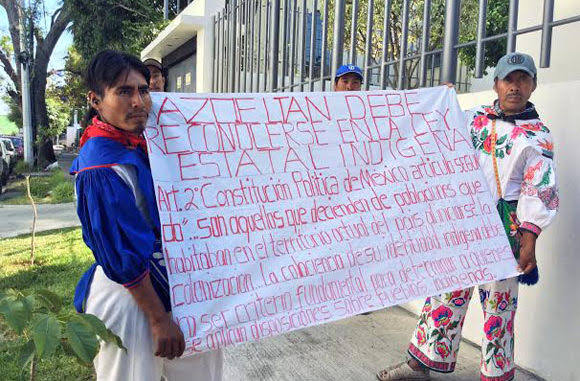 AZQELTAN DEBE
RECONOCERSE EN LA LEY
ESTATAL INDIGENA
Art. 2º Constitución Política de México articulo SEGUN
do "... son aquellos que decienden de poblaciones que
habitaban en el territorio actual del país al iniciarse la
colonización... La conciencia de su identidad indigena debe
ra ser criterio fundamental para determinar a quienes
se aplican disposiciones sobre pueblos indigenas